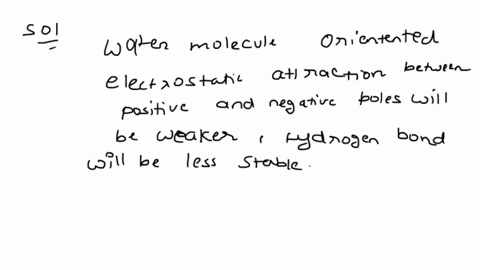 Sol
water molecule oriented
electrostatic attraction between
positive and negative poles will
be weaker , Hydrogen bond
will be less stable.